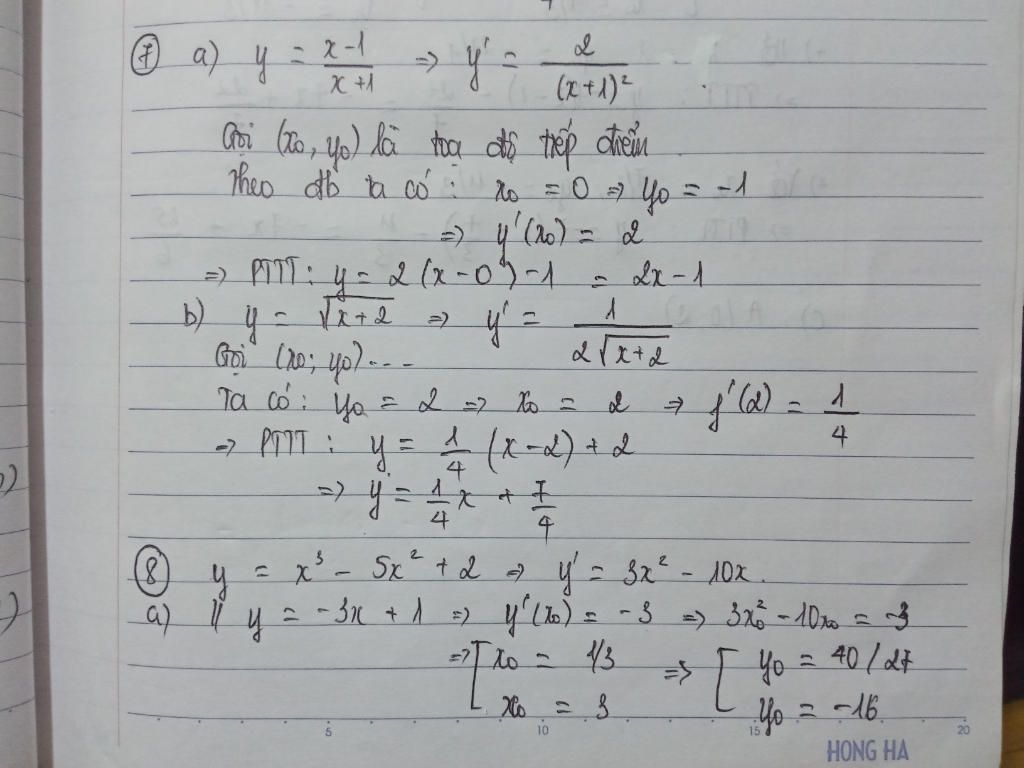 ⑦ a) y = (x-1)/(x+1) ⇒ y' = 2/(x+1)²
Gọi (x₀, y₀) là toạ độ tiếp điểm
Theo đb ta có: x₀ = 0 ⇒ y₀ = -1
⇒ y'(x₀) = 2
⇒ PTTT: y = 2(x-0)-1 = 2x-1
b) y = √(x+2) ⇒ y' = 1/(2√(x+2))
Gọi (x₀; y₀)...
Ta có: y₀ = 2 ⇒ x₀ = 2 ⇒ y'(2) = 1/4
⇒ PTTT: y = 1/4 (x-2) + 2
⇒ y = 1/4 x + 7/4
⑧ y = x³ - 5x² + 2 ⇒ y' = 3x² - 10x.
a) // y = -3x + 1 ⇒ y'(x₀) = -3 ⇒ 3x₀² - 10x₀ = -3
⇒ [ x₀ = 1/3 ⇒ [ y₀ = 40/27
x₀ = 3 y₀ = -16
5 10 15 20
HONG HA